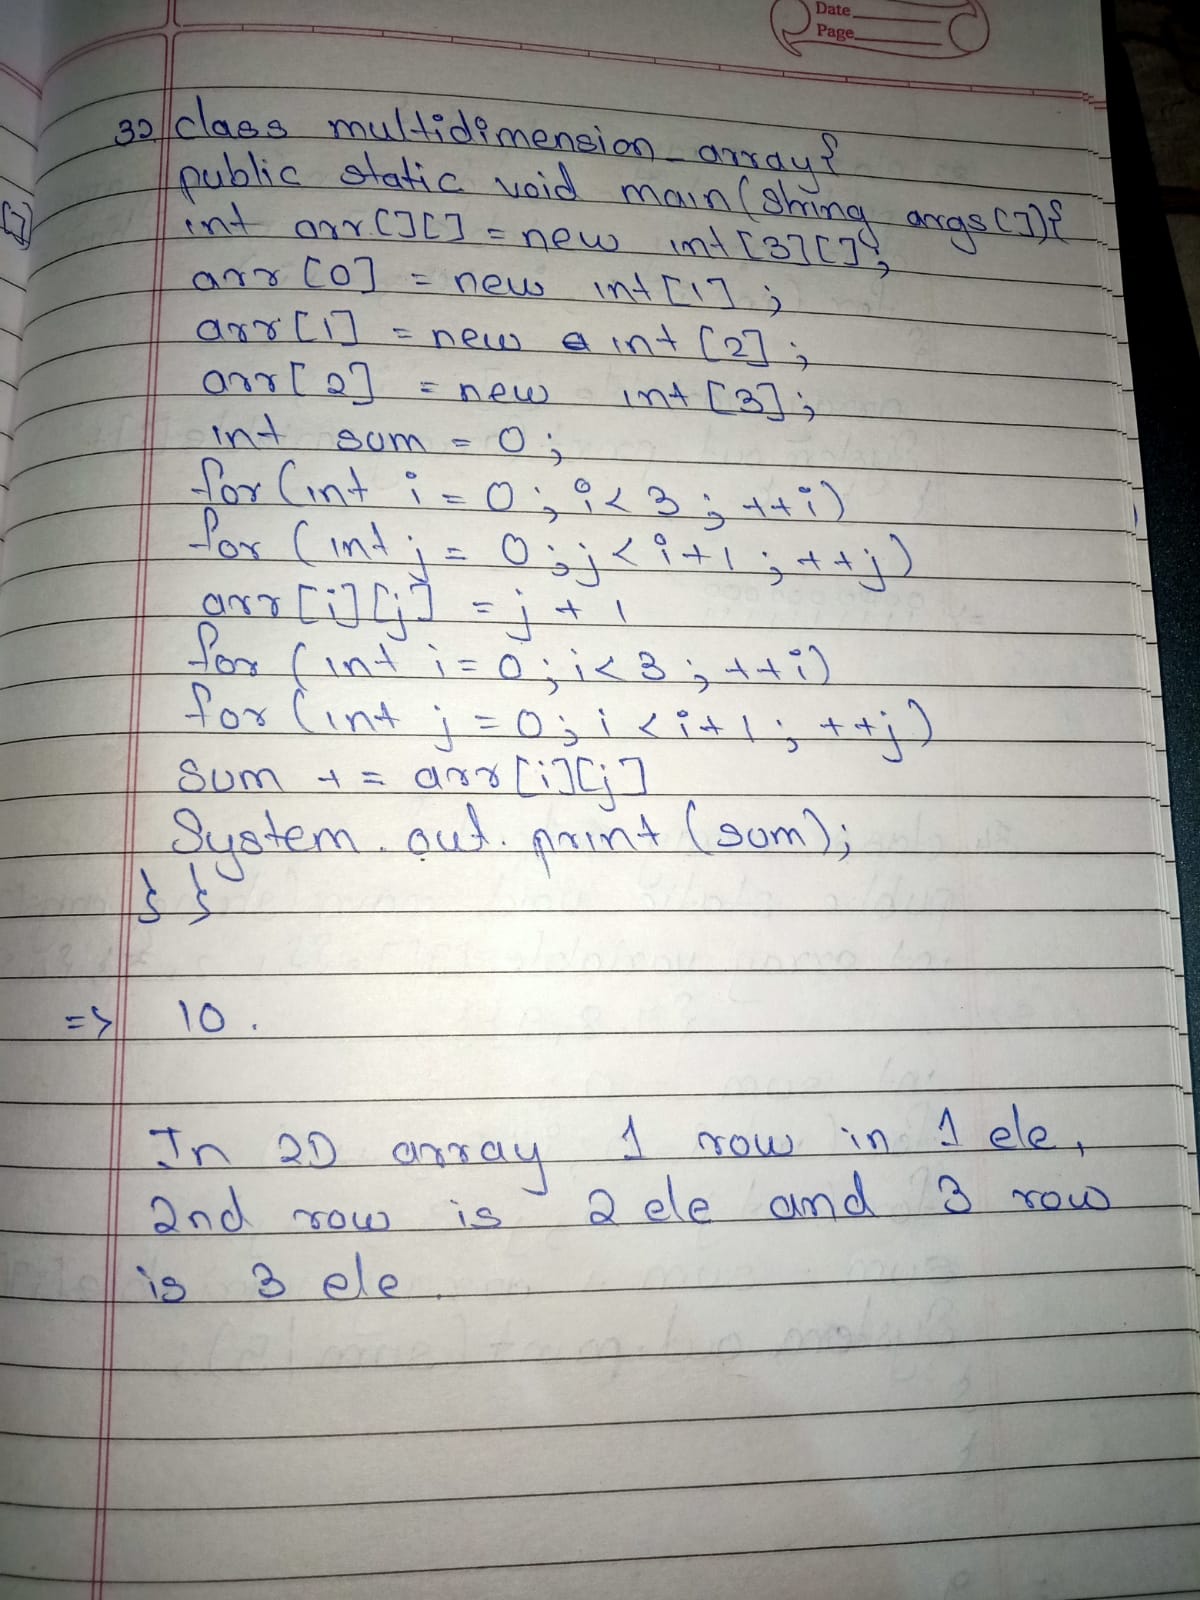 Date
Page
32 class multidimension_array{
public static void main(string args[]){
int arr[][] = new int[3][];
arr[0] = new int[1];
arr[1] = new int[2];
arr[2] = new int[3];
int sum = 0;
for(int i = 0; i<3; ++i)
for(int j = 0; j<i+1; ++j)
arr[i][j] = j + 1
for(int i=0; i<3; ++i)
for(int j=0; i<i+1; ++j)
sum += arr[i][j]
System.out.print(sum);
} }
=> 10.
In 2D array 1 row in 1 ele,
2nd row is 2 ele and 3 row
is 3 ele.